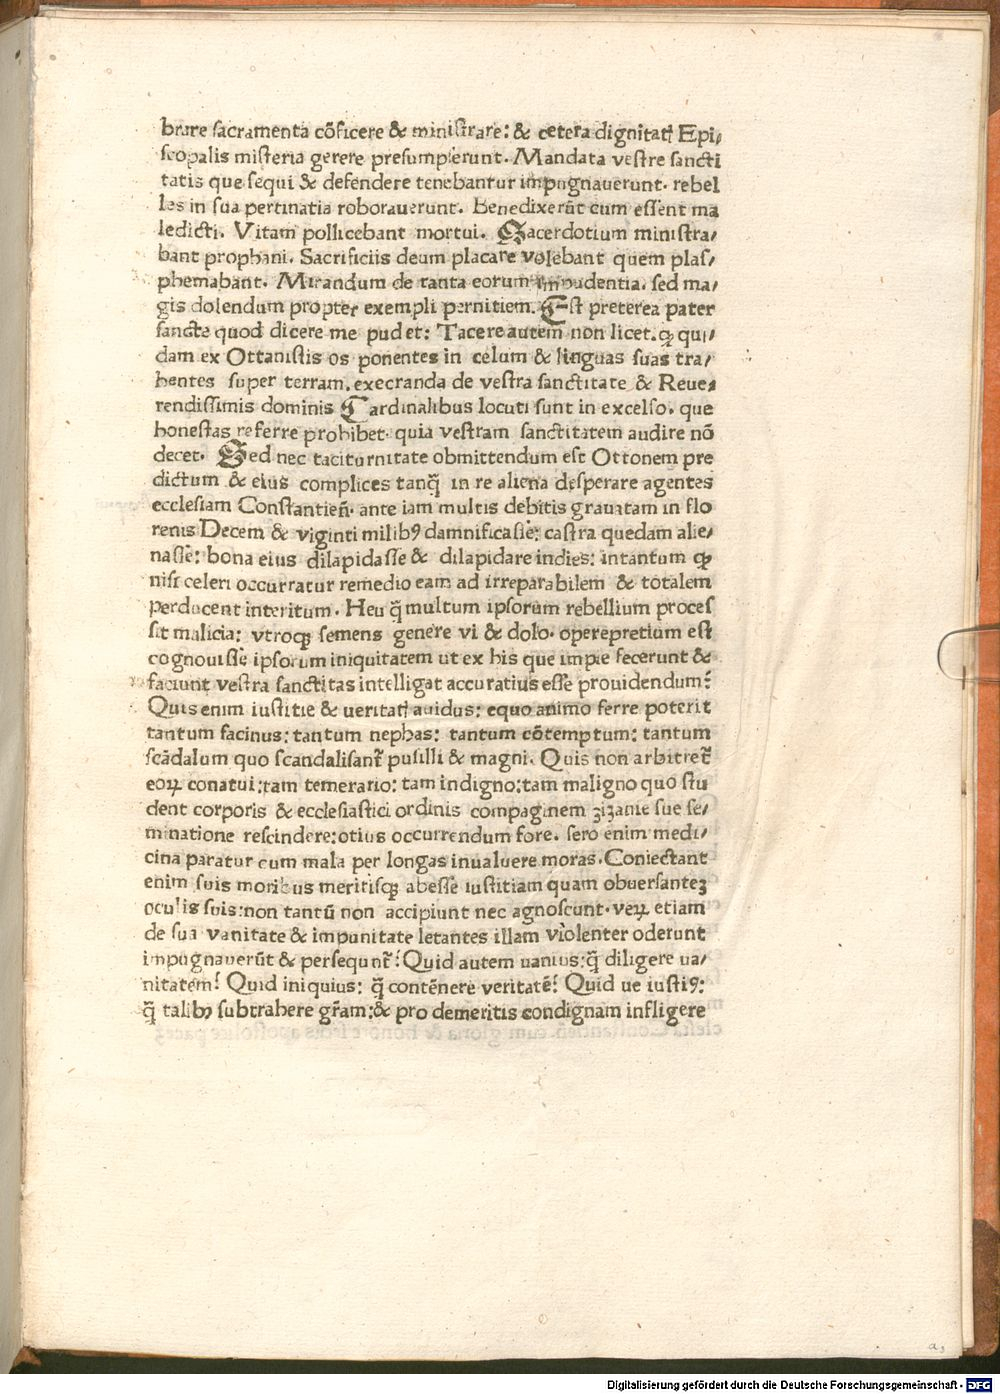 brare sacramenta cõficere & ministrare: & cetera dignitatꝭ Epi/
scopalis misteria gerere presumpserunt. Mandata vestre sancti
tatis que sequi & defendere tenebantur impugnauerunt. rebel
les in sua pertinatia roborauerunt. Benedixerũt cum essent ma
ledicti. Vitam pollicebant mortui. Sacerdotium ministra/
bant prophani. Sacrificiis deum placare volebant quem plas/
phemabant. Mirandum de tanta eorum impudentia. sed ma/
gis dolendum propter exempli pernitiem. Est preterea pater
sancte quod dicere me pudet: Tacere autem non licet. ꝙ qui/
dam ex Ottanistis os ponentes in celum & linguas suas tra/
hentes super terram. execranda de vestra sanctitate & Reue/
rendissimis dominis Cardinalibus locuti sunt in excelso. que
honestas referre prohibet. quia vestram sanctitatem audire nõ
decet. Sed nec taciturnitate obmittendum est Ottonem pre
dictum & eius complices tanq̃ in re aliena desperare agentes
ecclesiam Constantien̄. ante iam multis debitis grauatam in flo
renis Decem & viginti milibꝰ damnificasse: castra quedam alie/
nasse: bona eius dilapidasse & dilapidare indies: intantum ꝙ
nisi celeri occurratur remedio eam ad irreparabilem & totalem
perducent interitum. Heu q̃ multum ipsorum rebellium proces
sit malicia: vtroqꝫ semens genere vi & dolo. operepretium est
cognouisse ipsorum iniquitatem ut ex his que impie fecerunt &
faciunt vestra sanctitas intelligat accuratius esse prouidendum?
Quis enim iustitie & ueritatꝭ auidus: equo animo ferre poterit
tantum facinus: tantum nephas: tantum cõtemptum: tantum
scãdalum quo scandalisant̃ pusilli & magni. Quis non arbitret̃
eoꝝ conatui: tam temerario: tam indigno: tam maligno quo stu
dent corporis & ecclesiastici ordinis compaginem zizanie sue se/
minatione rescindere: otius occurrendum fore. sero enim medi/
cina paratur cum mala per longas inualuere moras. Coniectant
enim suis moribus meritisqꝫ abesse iustitiam quam obuersantez
oculis suis: non tantũ non accipiunt nec agnoscunt. veꝝ etiam
de sua vanitate & impunitate letantes illam violenter oderunt
impugnauerũt & persequnt̃? Quid autem uanius: q̃ diligere ua/
nitatem? Quid iniquius: q̃ contẽnere veritatẽ? Quid ue iustiꝰ:
q̃ talibꝰ subtrahere gr̃am: & pro demeritis condignam infligere
a3
Digitalisierung gefördert durch die Deutsche Forschungsgemeinschaft - DFG